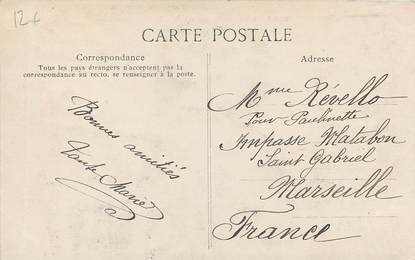 12+
CARTE POSTALE
Correspondance
Tous les pays étrangers n'acceptent pas la
correspondance au recto, se renseigner à la poste.
Bonnes amitiés
Tante Marie
Adresse
Mme Révello
Pour Paulinette
Impasse Matabon
Saint Gabriel
Marseille
France